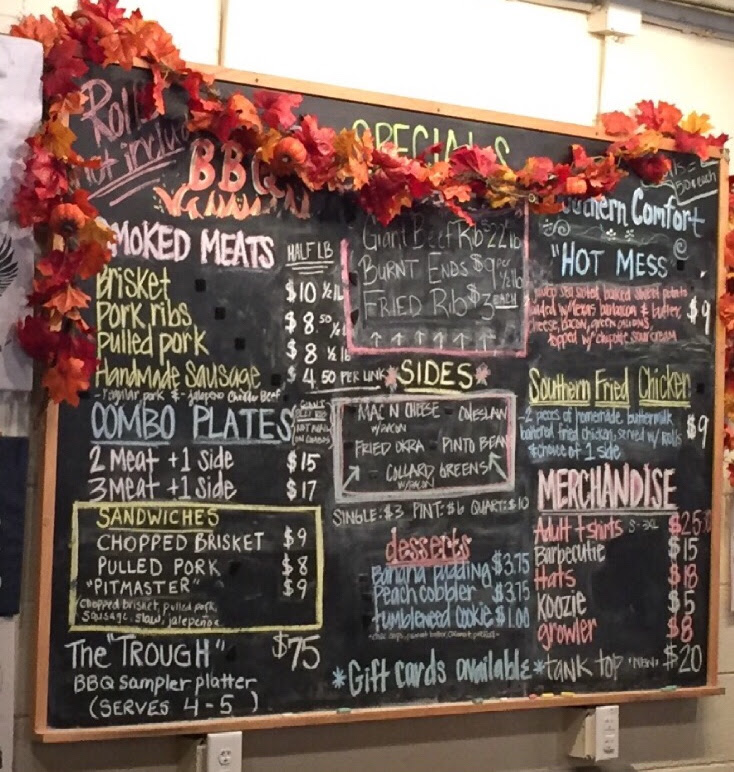 Rolls
not included
BBQ
SMOKED MEATS HALF LB
Brisket $10 ½ lb
Pork ribs $8.50 ½ lb
Pulled pork $8 ½ lb
Handmade Sausage $4.50 PER LINK
COMBO PLATES
2 Meat +1 Side $15
3 Meat +1 Side $17
SANDWICHES
CHOPPED BRISKET $9
PULLED PORK $8
"PITMASTER" $9
Chopped brisket, pulled pork,
Sausage, slaw, jalepeños
The "TROUGH" $75
BBQ Sampler platter
(SERVES 4-5)
SPECIALS
Giant Beef Rib $22 lb
BURNT ENDS $9 per ½ lb
FRIED Rib $3 EACH
SIDES
MAC N CHEESE - COLESLAW
W/BACON
FRIED OKRA - PINTO BEAN
- COLLARD GREENS
W/BACON
SINGLE: $3 PINT: $6 QUART: $10
desserts
Banana pudding $3.75
Peach cobbler $3.75
tumbleweed cookie $1.00
*Gift cards available*
Southern Comfort
"HOT MESS"
$9
topped w/ chipotle sour cream
Southern Fried Chicken
-2 pieces of homemade buttermilk
battered fried chicken, served w/ rolls
& choice of 1 side
$9
MERCHANDISE
Adult t-shirts S-3XL $25
Barbecutie $15
Hats $18
Koozie $5
growler $8
tank top $20